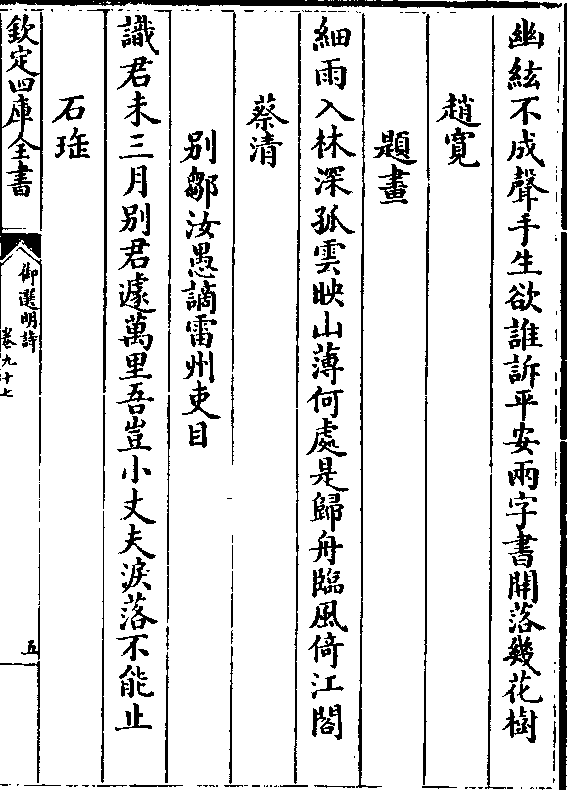 幽絃不成聲手生欲誰訴平安兩字書開落幾花樹
趙寛
題畫
細雨入林深孤雲映山薄何處是歸舟臨風倚江閣
蔡清
别鄒汝愚謫雷州吏目
識君未三月别君遽萬里吾豈小丈夫淚落不能止
石珤
欽定四庫全書
御選明詩
卷九十七
五